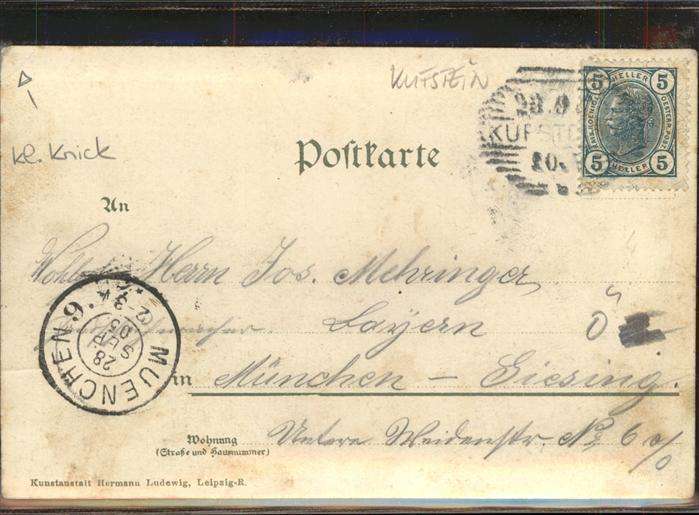 KUFSTEIN
Kl. Knick
5 HELLER 5
5 HELLER 5
28.9
KUFSTE
10
Postkarte
An
Herrn Jos. Mehringer
Bayern Ö
in München – Giesing.
MUENCHEN 9.
28
SEP
03
Wohnung
(Straße und Hausnummer)
Untere Weidenstr. No 6 0/0
Kunstanstalt Hermann Ludewig, Leipzig-R.